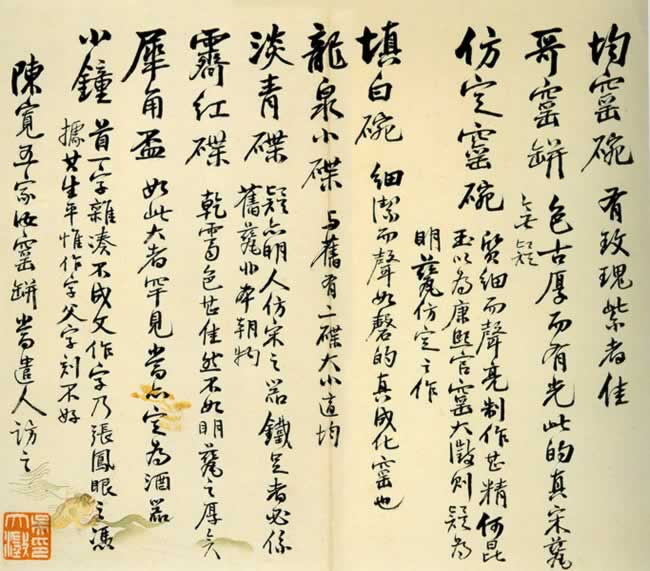 均窰碗 有玫瑰紫者佳
哥窰缾 色古厚而有光此的真宋甆
無疑
仿定窰碗 質細而聲亮制作甚精何昆
玉以為康熙官窰大澂則疑為
明甆仿定之作
填白碗 細潔而聲如磬的真成化窰也
龍泉小碟 与舊有二碟大小適均
淡青碟 疑亦明人仿宋之器鐵足者必係
舊甆非本朝物
霽紅碟 乾雪色甚佳然不如明甆之厚矣
犀角盃 如此大者罕見當亦定為酒器
小鐘 首一字雜湊不成文作字乃張鳳眼之馮
據其生平惟作字父字刻不好
陳寬吾家汝窰缾當遣人訪之
吳大澂印